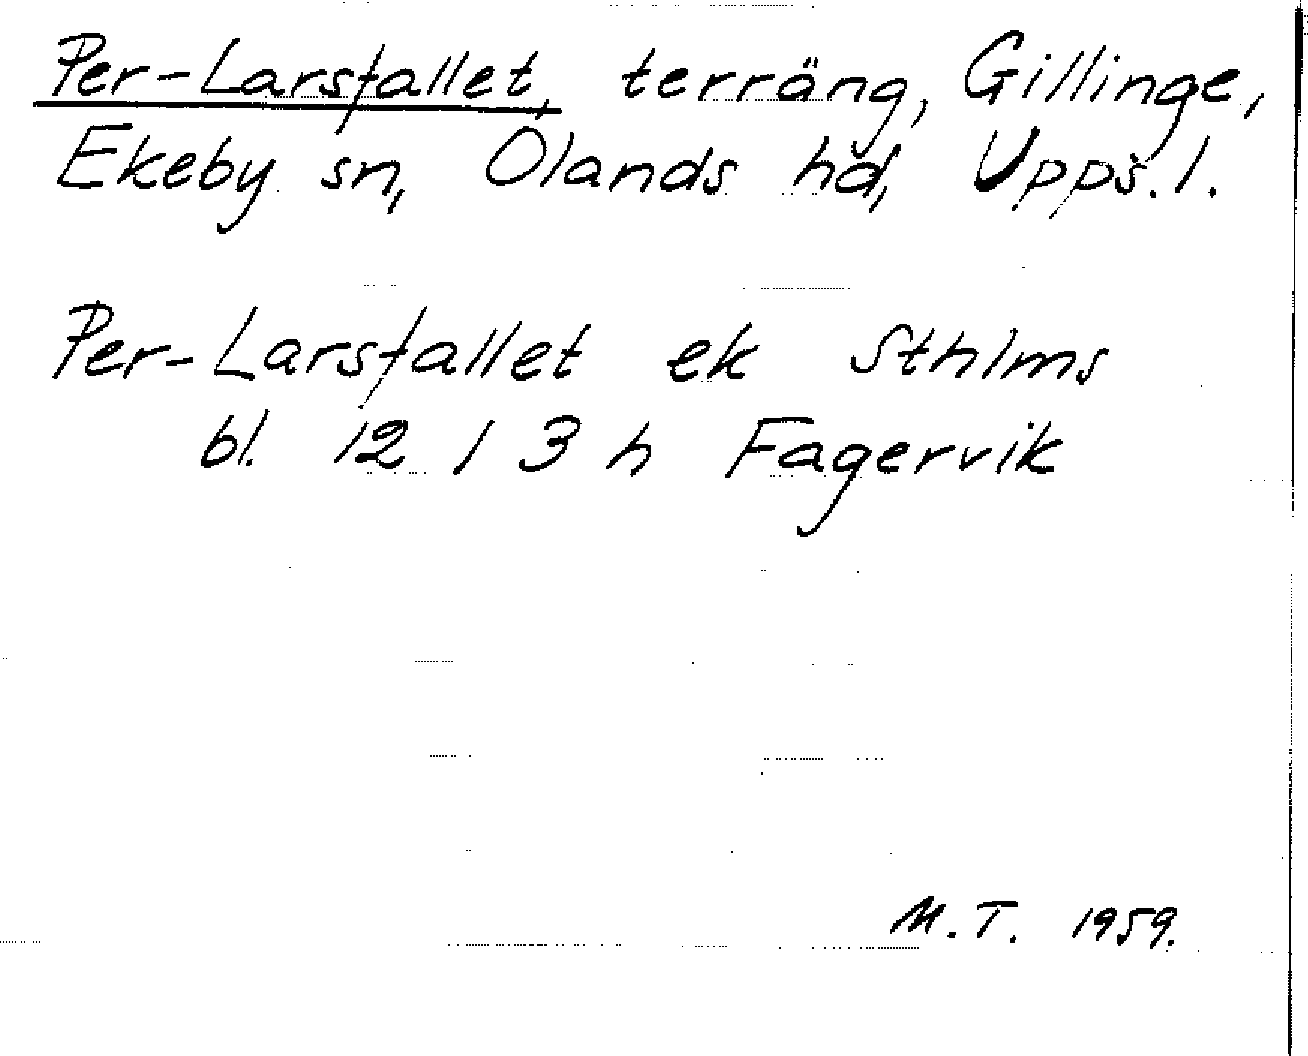 Per-Larsfallet, terräng, Gillinge,
Ekeby sn, Olands hd, Upps. l.
Per-Larsfallet ek Sthlms
bl. 12 I 3 h Fagervik
M.T. 1959.